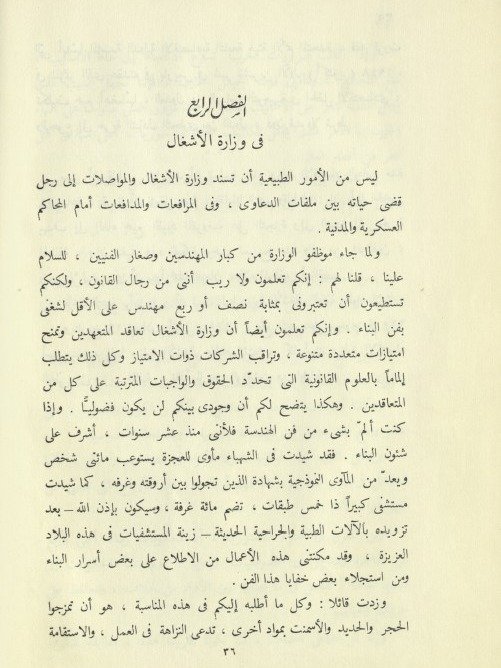 الفصل الرابع
فى وزارة الأشغال
ليس من الأمور الطبيعية أن تسند وزارة الأشغال والمواصلات إلى رجل
قضى حياته بين ملفات الدعاوى ، وفى المرافعات والمدافعات أمام المحاكم
العسكرية والمدنية .
ولما جاء موظفو الوزارة من كبار المهندسين وصغار الفنيين ، للسلام
علينا ، قلنا لهم : إنكم تعلمون ولا ريب أننى من رجال القانون ، ولكنكم
تستطيعون أن تعتبرونى بمثابة نصف أو ربع مهندس على الأقل لشغفى
بفن البناء . وإنكم تعلمون أيضاً أن وزارة الأشغال تعاقد المتعهدين وتمنح
امتيازات متعددة متنوعة ، وتراقب الشركات ذوات الامتياز وكل ذلك يتطلب
إلماماً بالعلوم القانونية التى تحدّد الحقوق والواجبات المترتبة على كل من
المتعاقدين . وهكذا يتضح لكم أن وجودى بينكم لن يكون فضوليًّا . وإذا
كنت ألمّ بشىء من فن الهندسة فلأننى منذ عشر سنوات ، أشرف على
شئون البناء . فقد شيدت فى الشهباء مأوى للعجزة يستوعب مائتى شخص
ويعدّ من المآوى النموذجية بشهادة الذين تجولوا بين أروقته وغرفه ، كما شيدت
مستشفى كبيراً ذا خمس طبقات ، تضم مائة غرفة ، وسيكون بإذن الله – بعد
تزويده بالآلات الطبية والجراحية الحديثة – زينة المستشفيات فى هذه البلاد
العزيزة ، وقد مكنتنى هذه الأعمال من الاطلاع على بعض أسرار البناء
ومن استجلاء بعض خفايا هذا الفن .
وزدت قائلا : وكل ما أطلبه إليكم فى هذه المناسبة ، هو أن تمزجوا
الحجر والحديد والأسمنت بمواد أخرى ، تدعى النزاهة فى العمل ، والاستقامة
٣٦